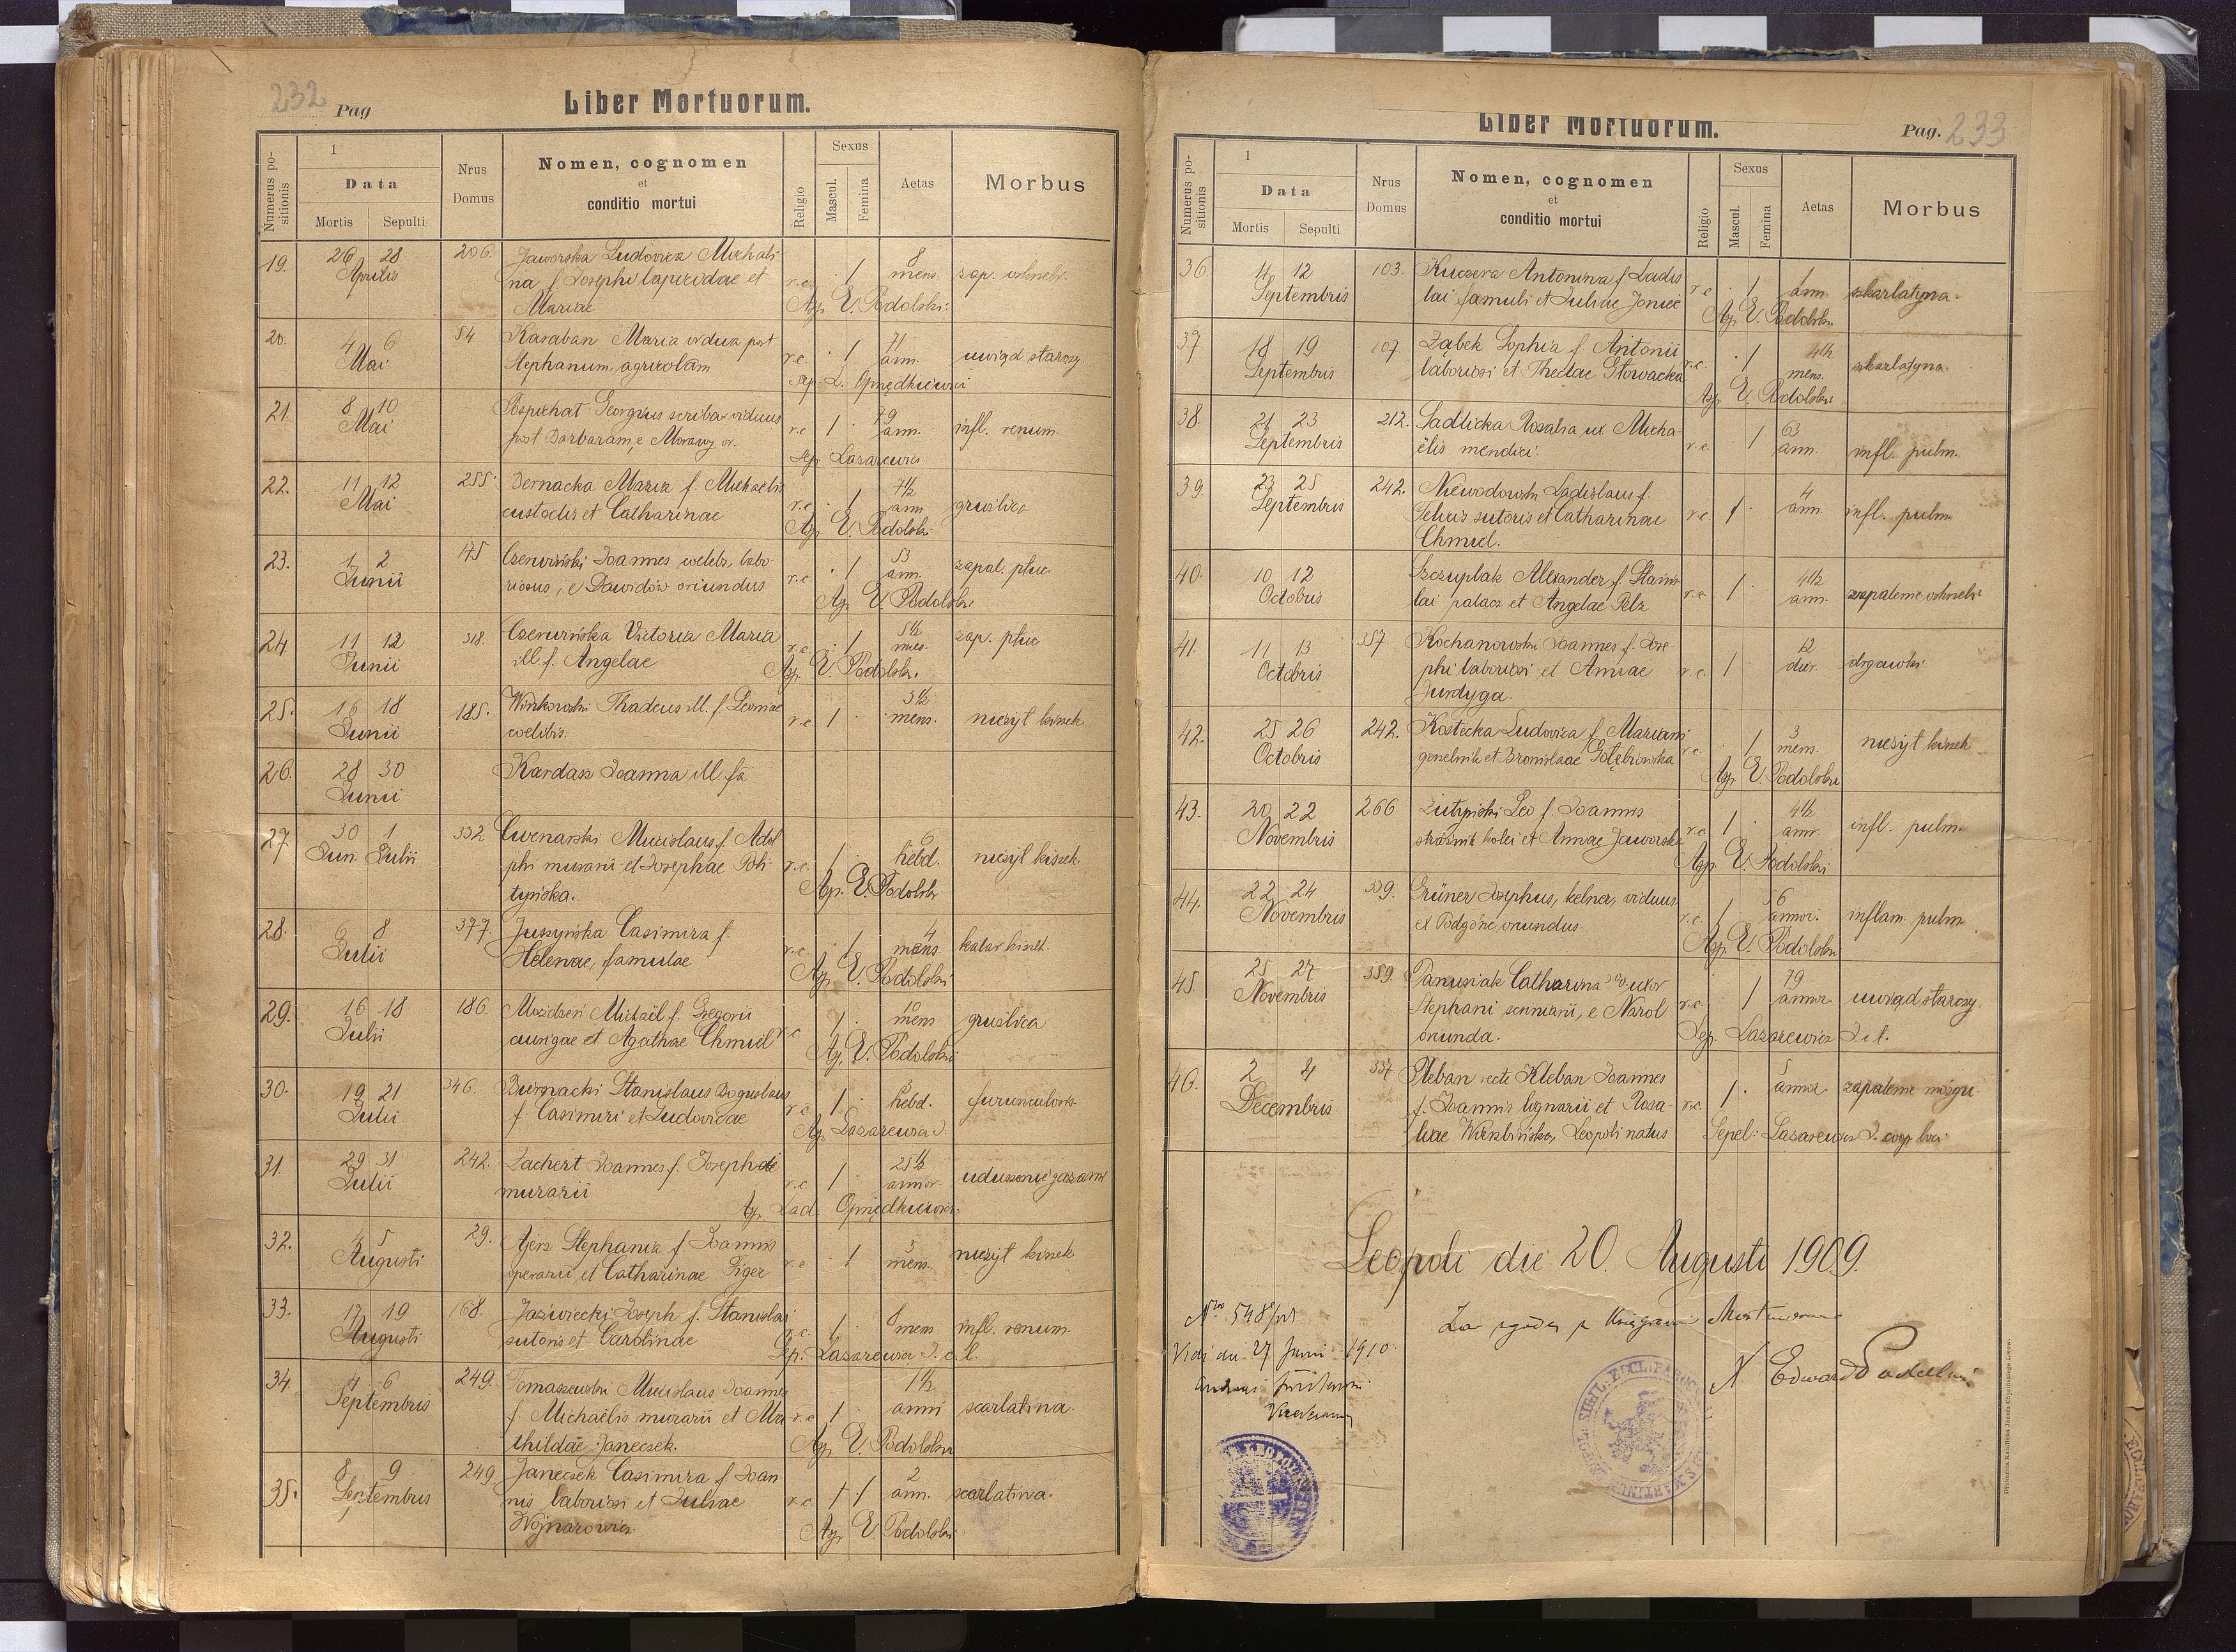 232 Pag
Liber Mortuorum.
Numerus positionis
1
Data
Mortis Sepulti
Nrus Domus
Nomen, cognomen
et
conditio mortui
Religio
Sexus
Mascul. Femina
Aetas
Morbus
19. 26 28 Aprilis 206. Jaworska Ludovica Michali-
na f. Josephi lapicidae et
Mariae r.c. 1 8 mens. zap. oskrzeli.
Ap. E. Podolski.
20. 4 6 Mai 54 Karaban Maria vidua post
Stephanum, agricolam r.c. 1 71 ann. uwiąd starczy.
Sep. L.
21. 8 10 Mai Pospichat Georgius scriba viduus
post Barbaram, e Morawy or. r.c. 1 79 ann. infl. renum.
Sep. Lazarewicz
22. 11 12 Mai 255. Bernacka Maria f. Michaelis
custodis et Catharinae r.c. 1 7 1/2 ann gruźlica
Ap. E. Podolski
23. 1 2 Junii 175 Czerwiński Joannes coelebs, labo-
riosus, e Dawidów oriundus r.c. 1 53 ann. zapal. płuc
Ap. E. Podolski
24. 11 12 Junii 318. Czerwińska Victoria Maria
ill. f. Angelae r.c. 1 5 1/2 mes. zap. płuc
Ap. E. Podolski.
25. 16 18 Junii 185. Winkowski Thadeus ill. f. Leoniae
coelibis. r.c. 1 3 1/2 mens. nieżyt kiszek
26. 28 30 Junii Kardasz Joanna ill fa
27. 30 1 Jun. Julii 332 Cwenarski Miecislaus f. Adol
phi murarii et Josephae Poli-
tyńska. r.c. 1 6 hebd. nieżyt kiszek.
Ap. E. Podolski
28. 6 8 Julii 377. Juszyńska Casimira f.
Helenae, famulae r.c. 1 4 mens. katar kiszek.
Ap. E. Podolski
29. 16 18 Julii 186. Moździeń Michaël f. Gregorii
aurigae et Agathae Chmiel r.c. 1 10 mens. gruźlica
Ap. E. Podolski
30. 19 21 Julii 346. Biernacki Stanislaus Boguslaus
f. Casimiri et Ludovicae r.c. 1 hebd. furunculosis.
Ap. Lazarewicz J.
31. 29 31 Julii 242. Lachert Joannes f. Josephi
murarii r.c. 1 25 1/2 annor. uduszenie gazami
Ap. Lad.
32. 4 5 Augusti 29. Ajers Stephania f. Joannis
operarii et Catharinae Figer r.c. 1 3 mens. nieżyt kiszek
33. 17 19 Augusti 168. Jaźwiecki Joseph f. Stanislai
sutoris et Carolinae r.c. 1 8 mens infl. renum.
Sep. Lazarewicz J. c. l.
34. 4 6 Septembris 249. Tomaszewski Miecislaus Joannes
f. Michaëlis murarii et Ma-
thildae Janeczek. r.c. 1 1 1/2 anni scarlatina.
Ap. E. Podolski
35. 8 9 Septembris 249. Janeczek Casimira f. Joan-
nis laboriosi et Juliae
Wojnarowicz. r.c. 1 1 2 ann. scarlatina.
Ap. E. Podolski
Liber Mortuorum.
Pag. 233
Numerus positionis
1
Data
Mortis Sepulti
Nrus Domus
Nomen, cognomen
et
conditio mortui
Religio
Sexus
Mascul. Femina
Aetas
Morbus
36. 12 Septembris 103. Kuczera Antonina f. Ladis
lai famuli et Juliae Joniec r.c. 1 1 ann. szkarlatyna.
Ap. E. Podolski
37 18 19 Septembris 107 Ząbek Sophia f. Antonii
laboriosi et Theclae Głowacka r.c. 1 4 1/2 mens. szkarlatyna.
Ap. E. Podolski
38. 21 23 Septembris 212. Sadlicka Rosalia ux Micha-
ëlis mendici r.c. 1 63 ann. infl. pulm.
39. 23 25 Septembris 242. Niewodowski Ladislaus f.
Felicis sutoris et Catharinae
Chmiel. r.c. 1 4 ann. infl. pulm.
40. 10 12 Octobris Szczuplak Alexander f. Stanis-
lai palacz et Angelae Pelz r.c. 1 4 1/2 ann. zapalenie oskrzeli
41. 11 13 Octobris 357. Kochanowski Joannes f. Jose-
phi laboriosi et Annae
Durdyga. r.c. 1 12 dier. drgawki
42. 25 26 Octobris 242. Kostecka Ludovica f. Mariani
gorzelnik et Bronislaae Gołębiowska r.c. 1 3 mens. nieżyt kiszek
Ap. E. Podolski
43. 20 22 Novembris 266 Lutyński Leo f. Joannis
strażnik kolei et Annae Jaworska r.c. 1 4 1/2 ann. infl. pulm.
Ap. E. Podolski
44. 22 24 Novembris 339. Grüner Josephus, kelner, viduus
ex Podgórze oriundus. r.c. 1 56 annor. inflam. pulm
Ap. E. Podolski
45 25 27 Novembris 359. Panusiak Catharina uxor
Stephani, e Narol
oriunda. r.c. 1 79 annor uwiąd starczy.
Sep. Lazarewicz J. c. l.
46. 2 4 Decembris 337 Pleban recte Kleban Joannes
f. Joannis lignarii et Rosa-
liae Wierzbińska, Leopoli natus r.c. 1 5 annor. zapalenie mózgu
Sepel. Lazarewicz J. coop. loci
Leopoli die 20. Augusti 1909.
Za zgodę z Księgami Mortuorum
X Edward Podolski
Nro 548
Vidi die 27 Junii 1910.